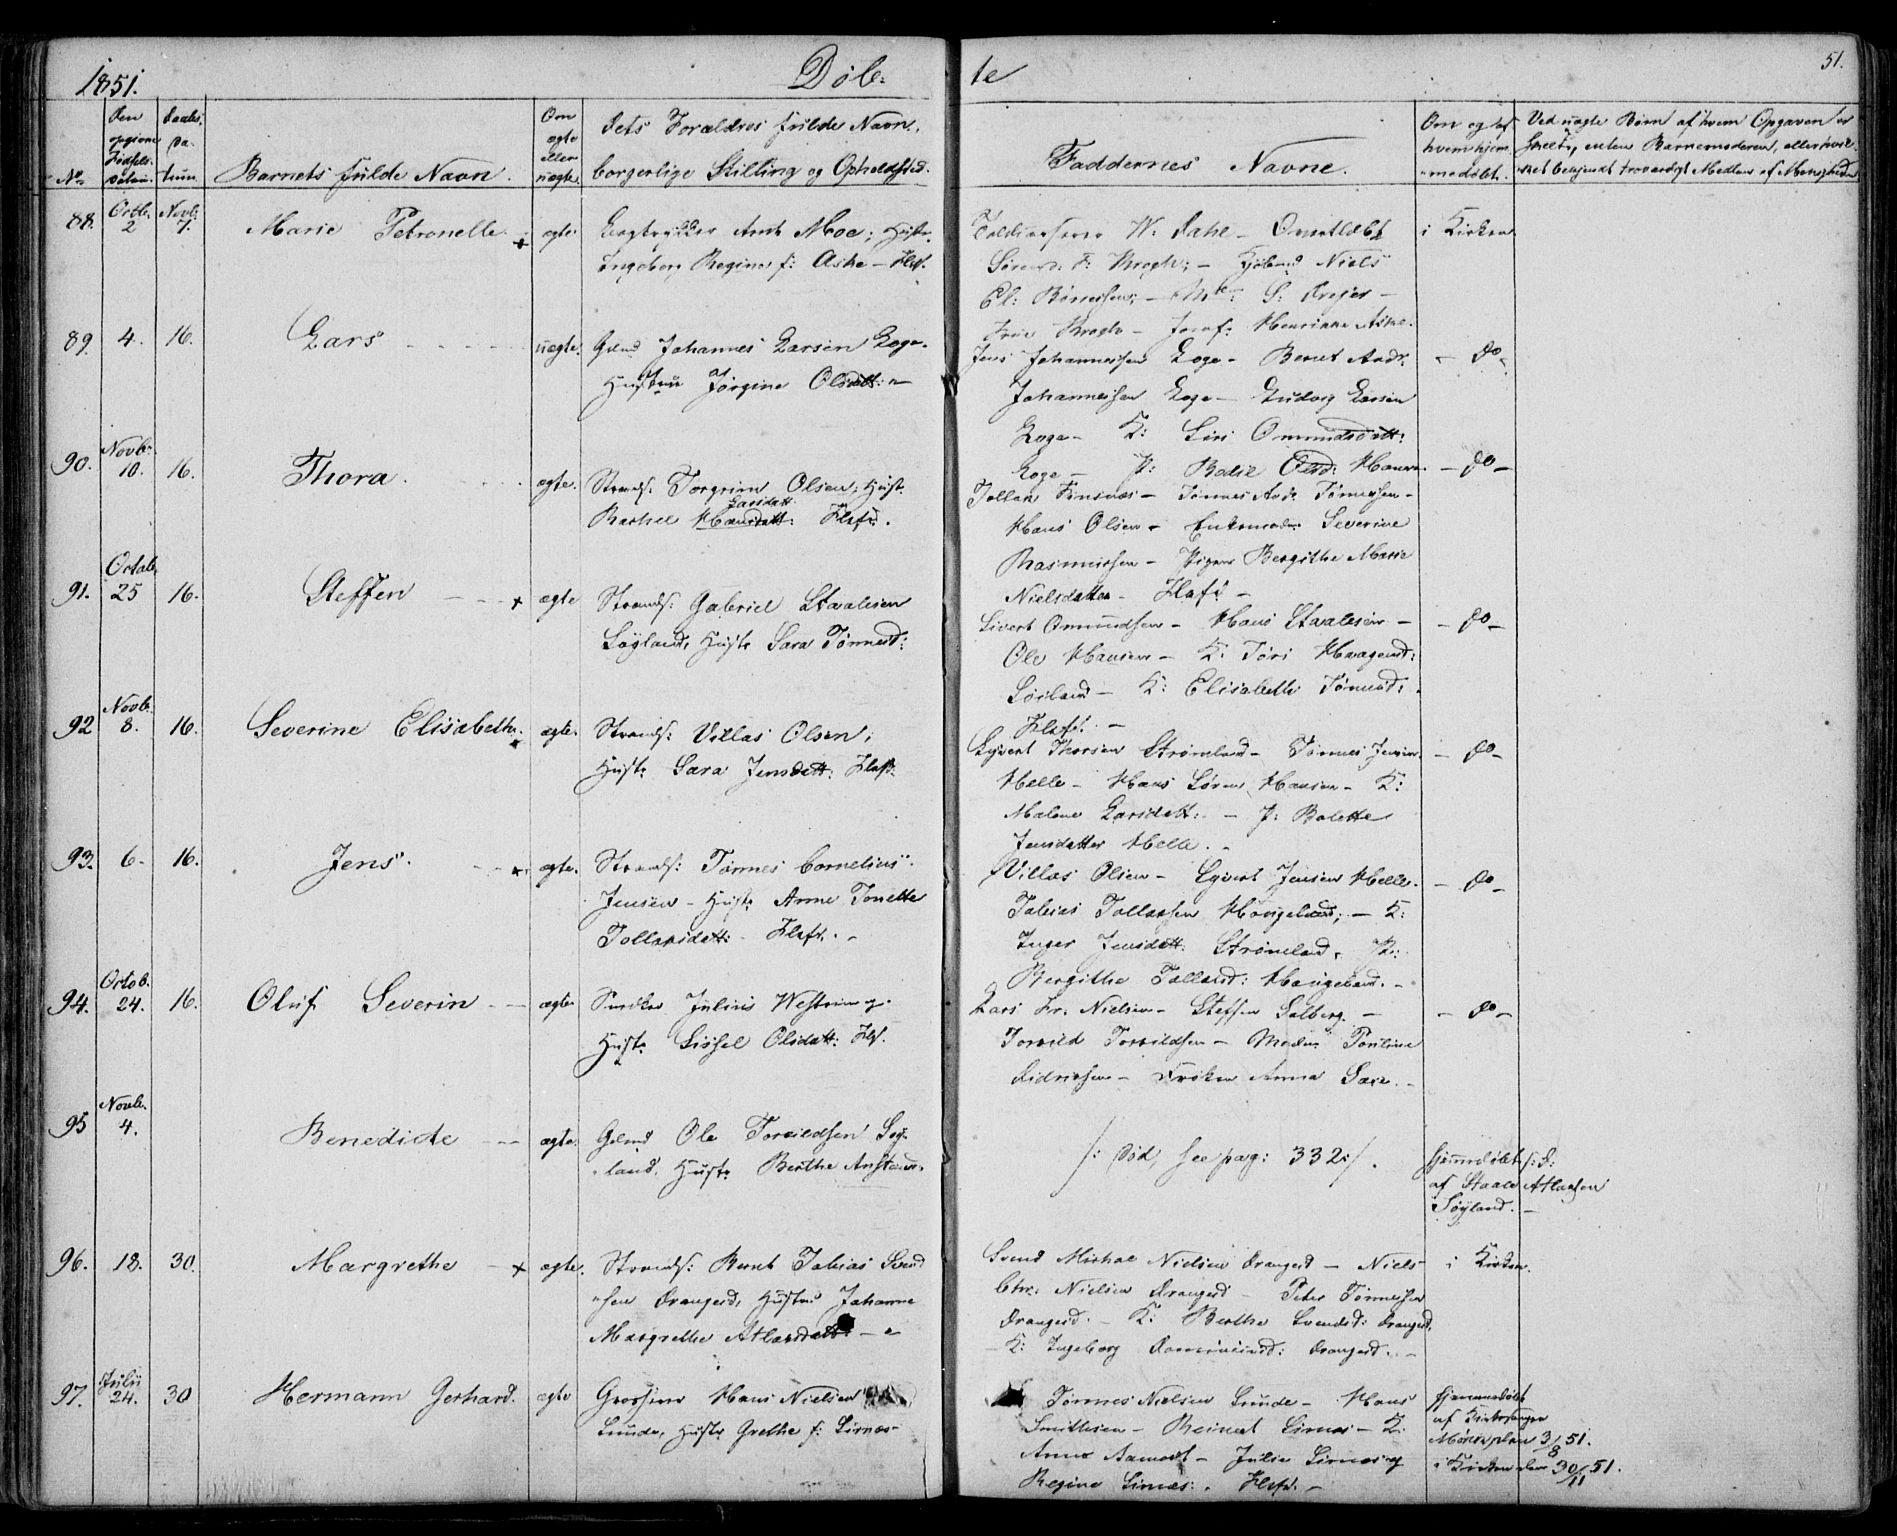 1851.
Døb-
te
51.
No
Den opgivne Fødsels-datum.
Daabs-Da-tum
Barnets fulde Navn.
Om ægte eller uægte.
Dets Forældres fulde Navn,
borgerlige Stilling og Opholdssted.
Faddernes Navne.
Om og af hvem hjemmedøbt.
Ved uægte Børn af hvem Opgaven er
skeet, enten Barnemoderen, eller hvil-
88. Octbr. 2 Novb: 7. Marie Petronelle. + ægte
Arnt Moe; Hustr.
Ingeborg Regine f: Aske - Flef.
W: Dahl -
Søren F: Krogh; - Niels
- S: Dreyer -
Frue Krogh - Jomf: Henrikke Aske.
i Kirken
89. 4. 16. Lars uægte.
Gmd Johannes Larsen Loge.
Hustrue Jørgine Olsdatt: -
Jens Johannessen Loge - Bernt Andr.
Johannessen Loge - Ludvig Larsen
Loge - K: Siri Omundsdatt:
Loge - P:
- do -
90. Novbr. 10. 16. Thora. ægte.
Strands: Torgrim Olsen; Hust.
Larsdatt
Rachel Hansdatt: Flefd.
Tønnes Andr. Tønnessen -
Hans Olsen - Enkemadm: Severine
Rasmussen - Pigen Bergithe Marie
Nielsdatter - Flefd -
- do -
91. Octob. 25 16. Steffen + ægte
Strands: Gabriel Staalesen
Søyland, Hustr Sara Tønnesd:
Sivert Omundsen - Hans Staalesen -
Ole Hansen - K: Tøri Haagensd:
Søiland - K: Elisabeth Tønnesd:
Flefd. -
- do -
92 Novb. 8. 16. Severine Elisabeth. + ægte.
Strands: Villas Olsen;
Hustr Sara Jensdatt: Flefd.
Sivert Thorsen Strømland - Tønnes Jensen
Helle - Hans Søren Hansen - K:
Malene Larsdatt: - P: Bolette
Jensdatter Helle. -
- do -
93. 6. 16. Jens. + ægte.
Strands: Tønnes Cornelius
Jensen - Hustr Anne Tonette
Tollaksdatt: Flefd. -
Villas Olsen - Sivert Jensen Helle.
Tobias Tollaksen Haugeland; - K:
Inger Jensdatt: Strømland, P:
Bergithe Tollaksd: Haugeland. -
- do -
94. Octob. 24. 16. Oluf Severin - ægte
Snedker Julius
Hustr Sissel Olsdatt: Flef.
Lars Fr. Nielsen - Steffen Salberg. -
Torkild Torkildsen - Madm: Pouline
Didriksen - Frøken Anna Saxe. -
- do -
95 Novb. 4. Benedicte - ægte.
Gdmd Ole Torkildsen Søy-
land, Hustr Berthe
/: Død, see pag: 332 :/.
hjemmedøbt /: D:
af Staale Atlaksen
Søyland. -
96. 18. 30. Margrethe - + ægte.
Strands: Bernt Tobias Svend
sen Drangeid, Hustru Johanne
Margrethe Atlaksdatt: -
Svend Michal Nielsen Drangeid - Niels
Chr: Nielsen Drangeid - Peter Tønnessen
Drangeid. - K: Berthe Svendsd: Drangeid,
K: Ingeborg Drangeid. -
i Kirken.
97. Julii 24. 30 Hermann Gerhard. ægte
Grosserer Hans Nielsen
Lunde, Hustr Grethe f: Sirnes -
Tønnes Nielsen Lunde - Hans
Smithsen - Reinert Sirnes - K.
Anne Aamodt - Julie Sirnes og
Regine Sirnes: Flefd. -
hjemmedøbt
af Kirkesanger
Mønnich den 3/8 51.
i Kirken den 30/11 51.